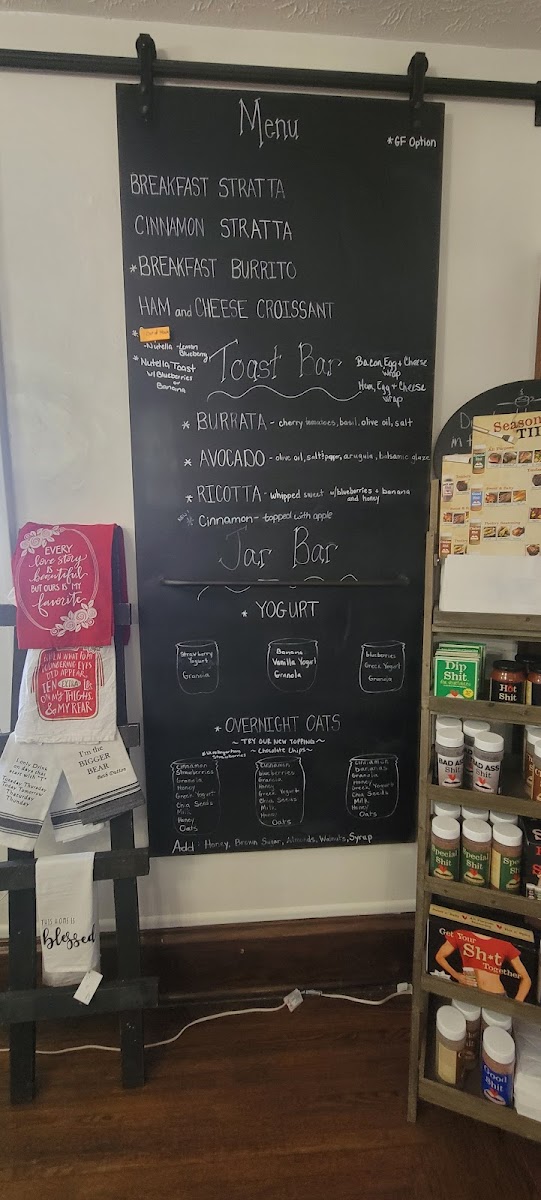 Menu
*GF Option
BREAKFAST STRATTA
CINNAMON STRATTA
*BREAKFAST BURRITO
HAM and CHEESE CROISSANT
*
-Nutella -Lemon
Blueberry
* Nutella Toast
w/Blueberries
or
Banana
Toast Bar
Bacon, Egg + Cheese
wrap
Ham, Egg + Cheese
wrap
* BURRATA - cherry tomatoes, basil, olive oil, salt
* AVOCADO - olive oil, salt+pepper, arugula, balsamic glaze
* RICOTTA - whipped sweet w/blueberries + banana
and honey
* Cinnamon - topped with apple
Jar Bar
* YOGURT
Strawberry
Yogurt
Granola
Banana
Vanilla Yogurt
Granola
blueberries
Greek Yogurt
Granola
* OVERNIGHT OATS
~ TRY OUR NEW TOPPING ~
~ Chocolate Chips ~
Cinnamon
Strawberries
Granola
Honey
Greek Yogurt
Chia Seeds
Milk
Honey
Oats
Cinnamon
blueberries
Granola
Honey
Greek Yogurt
Chia Seeds
Milk
Honey
Oats
Cinnamon
bananas
Granola
Honey
Greek Yogurt
Chia Seeds
Milk
Honey
Oats
Add - Honey, Brown Sugar, Almonds, Walnuts, Syrup
EVERY
love story
is
beautiful
BUT OURS IS MY
favorite
EXTRA
ON MY THIGHS
& MY REAR
I only Drink
on days that
start with "T"
Tuesday
Thursday
Today Tomorrow
Thaturday
Thunday
I'm the
BIGGER
BEAR
THIS HOME IS
blessed
Season
Dip
Shit
Hot
Shit
BAD ASS
Shit
BAD ASS
Shit
Special
Shit
Special
Shit
Get Your
Sh*t
Together
Good
Shit